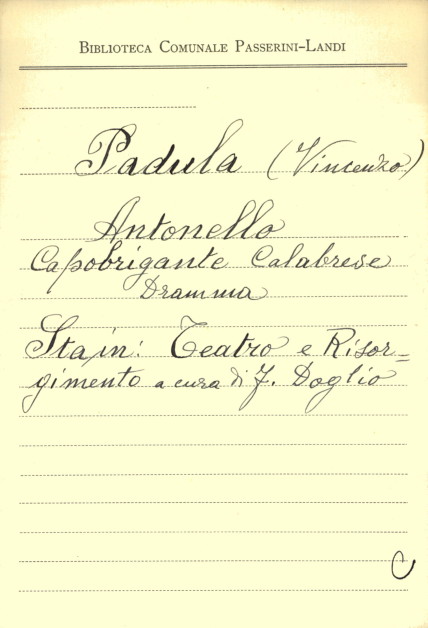 BIBLIOTECA COMUNALE PASSERINI-LANDI
Padula (Vincenzo)
Antonello
Capobrigante Calabrese
Dramma
Sta in: Teatro e Risor=
gimento a cura di F. Doglio
C